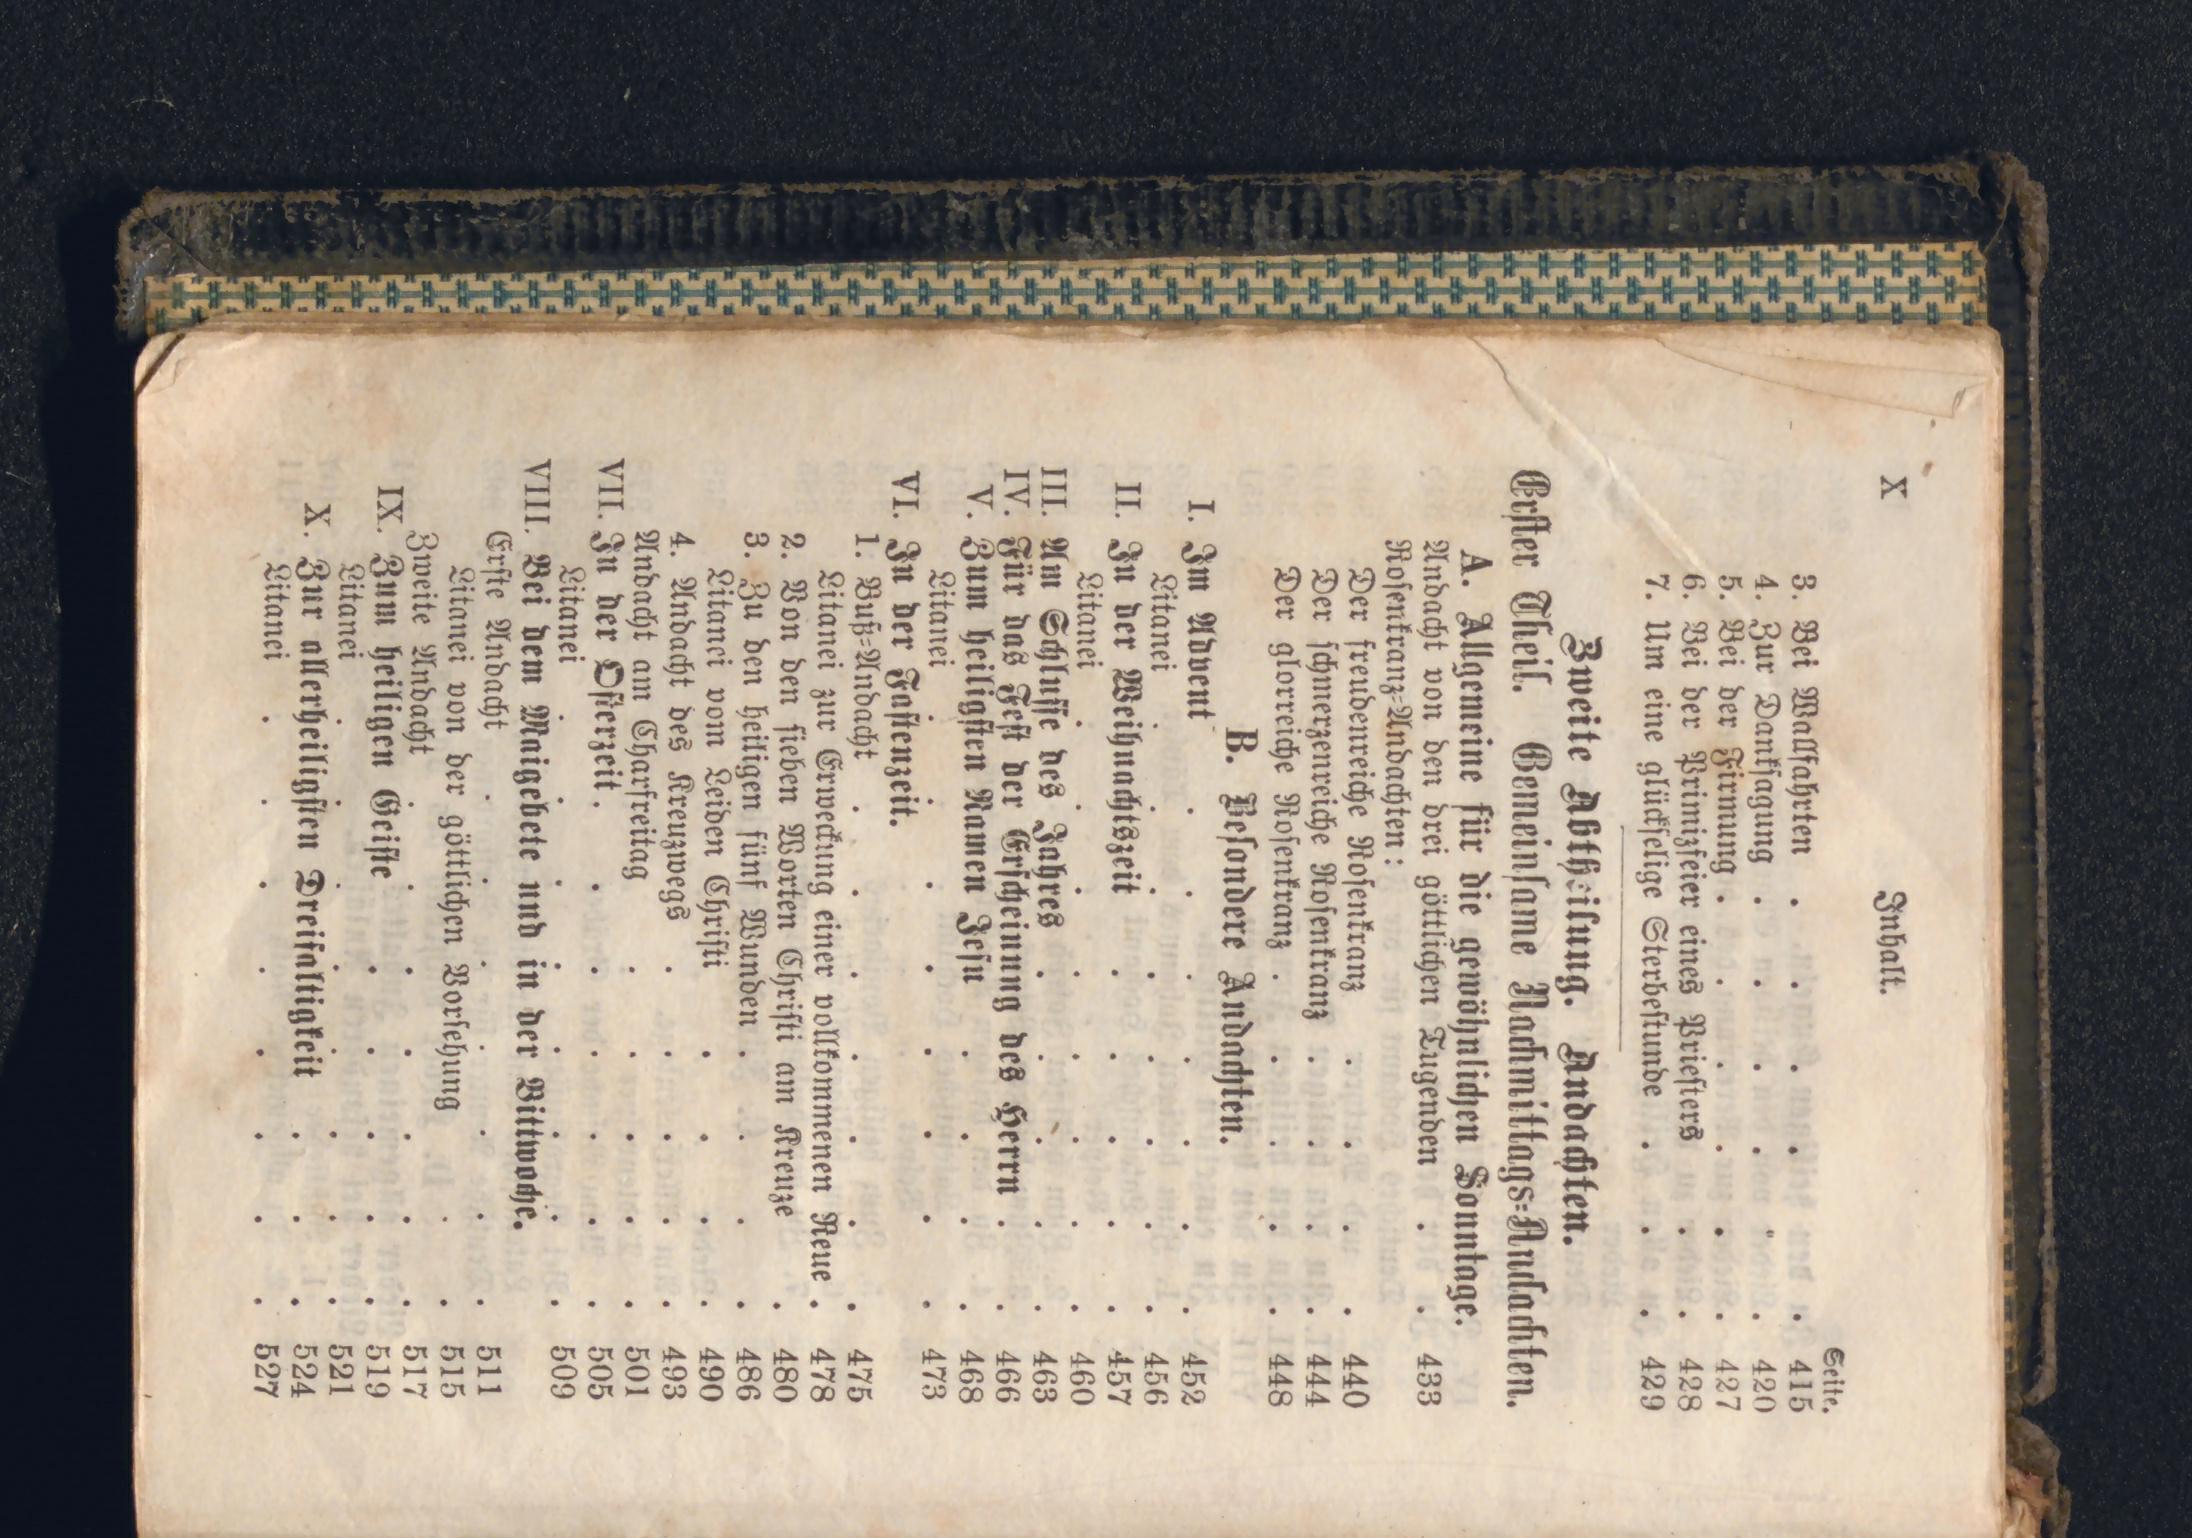 X
Inhalt.
Seite.
3. Bei Wallfahrten . . . . . . 415
4. Zur Danksagung . . . . . . 420
5. Bei der Firmung . . . . . . 427
6. Bei der Primizfeier eines Priesters . . 428
7. Um eine glückselige Sterbestunde . . . 429
Zweite Abtheilung. Andachten.
Erster Theil. Gemeinsame Nachmittags=Andachten.
A. Allgemeine für die gewöhnlichen Sonntage.
Andacht von den drei göttlichen Tugenden . . 433
Rosenkranz=Andachten:
Der freudenreiche Rosenkranz . . . . 440
Der schmerzenreiche Rosenkranz . . . . 444
Der glorreiche Rosenkranz . . . . . 448
B. Besondere Andachten.
I. Im Advent . . . . . . . 452
Litanei . . . . . . . 456
II. In der Weihnachtszeit . . . . . 457
Litanei . . . . . . . 460
III. Am Schlusse des Jahres . . . . . 463
IV. Für das Fest der Erscheinung des Herrn . . 466
V. Zum heiligsten Namen Jesu . . . . 468
Litanei . . . . . . . 473
VI. In der Fastenzeit.
1. Buß=Andacht . . . . . . . 475
Litanei zur Erweckung einer vollkommenen Reue . 478
2. Von den sieben Worten Christi am Kreuze . . 480
3. Zu den heiligen fünf Wunden . . . . 486
Litanei vom Leiden Christi . . . . 490
4. Andacht des Kreuzwegs . . . . . 493
Andacht am Charfreitag . . . . . 501
VII. In der Osterzeit . . . . . . . 505
Litanei . . . . . . . 509
VIII. Bei dem Maigebete und in der Bittwoche.
Erste Andacht . . . . . . . 511
Litanei von der göttlichen Vorsehung . . 515
Zweite Andacht . . . . . . 517
IX. Zum heiligen Geiste . . . . . 519
Litanei . . . . . . . 521
X. Zur allerheiligsten Dreifaltigkeit . . . 524
Litanei . . . . . . . 527